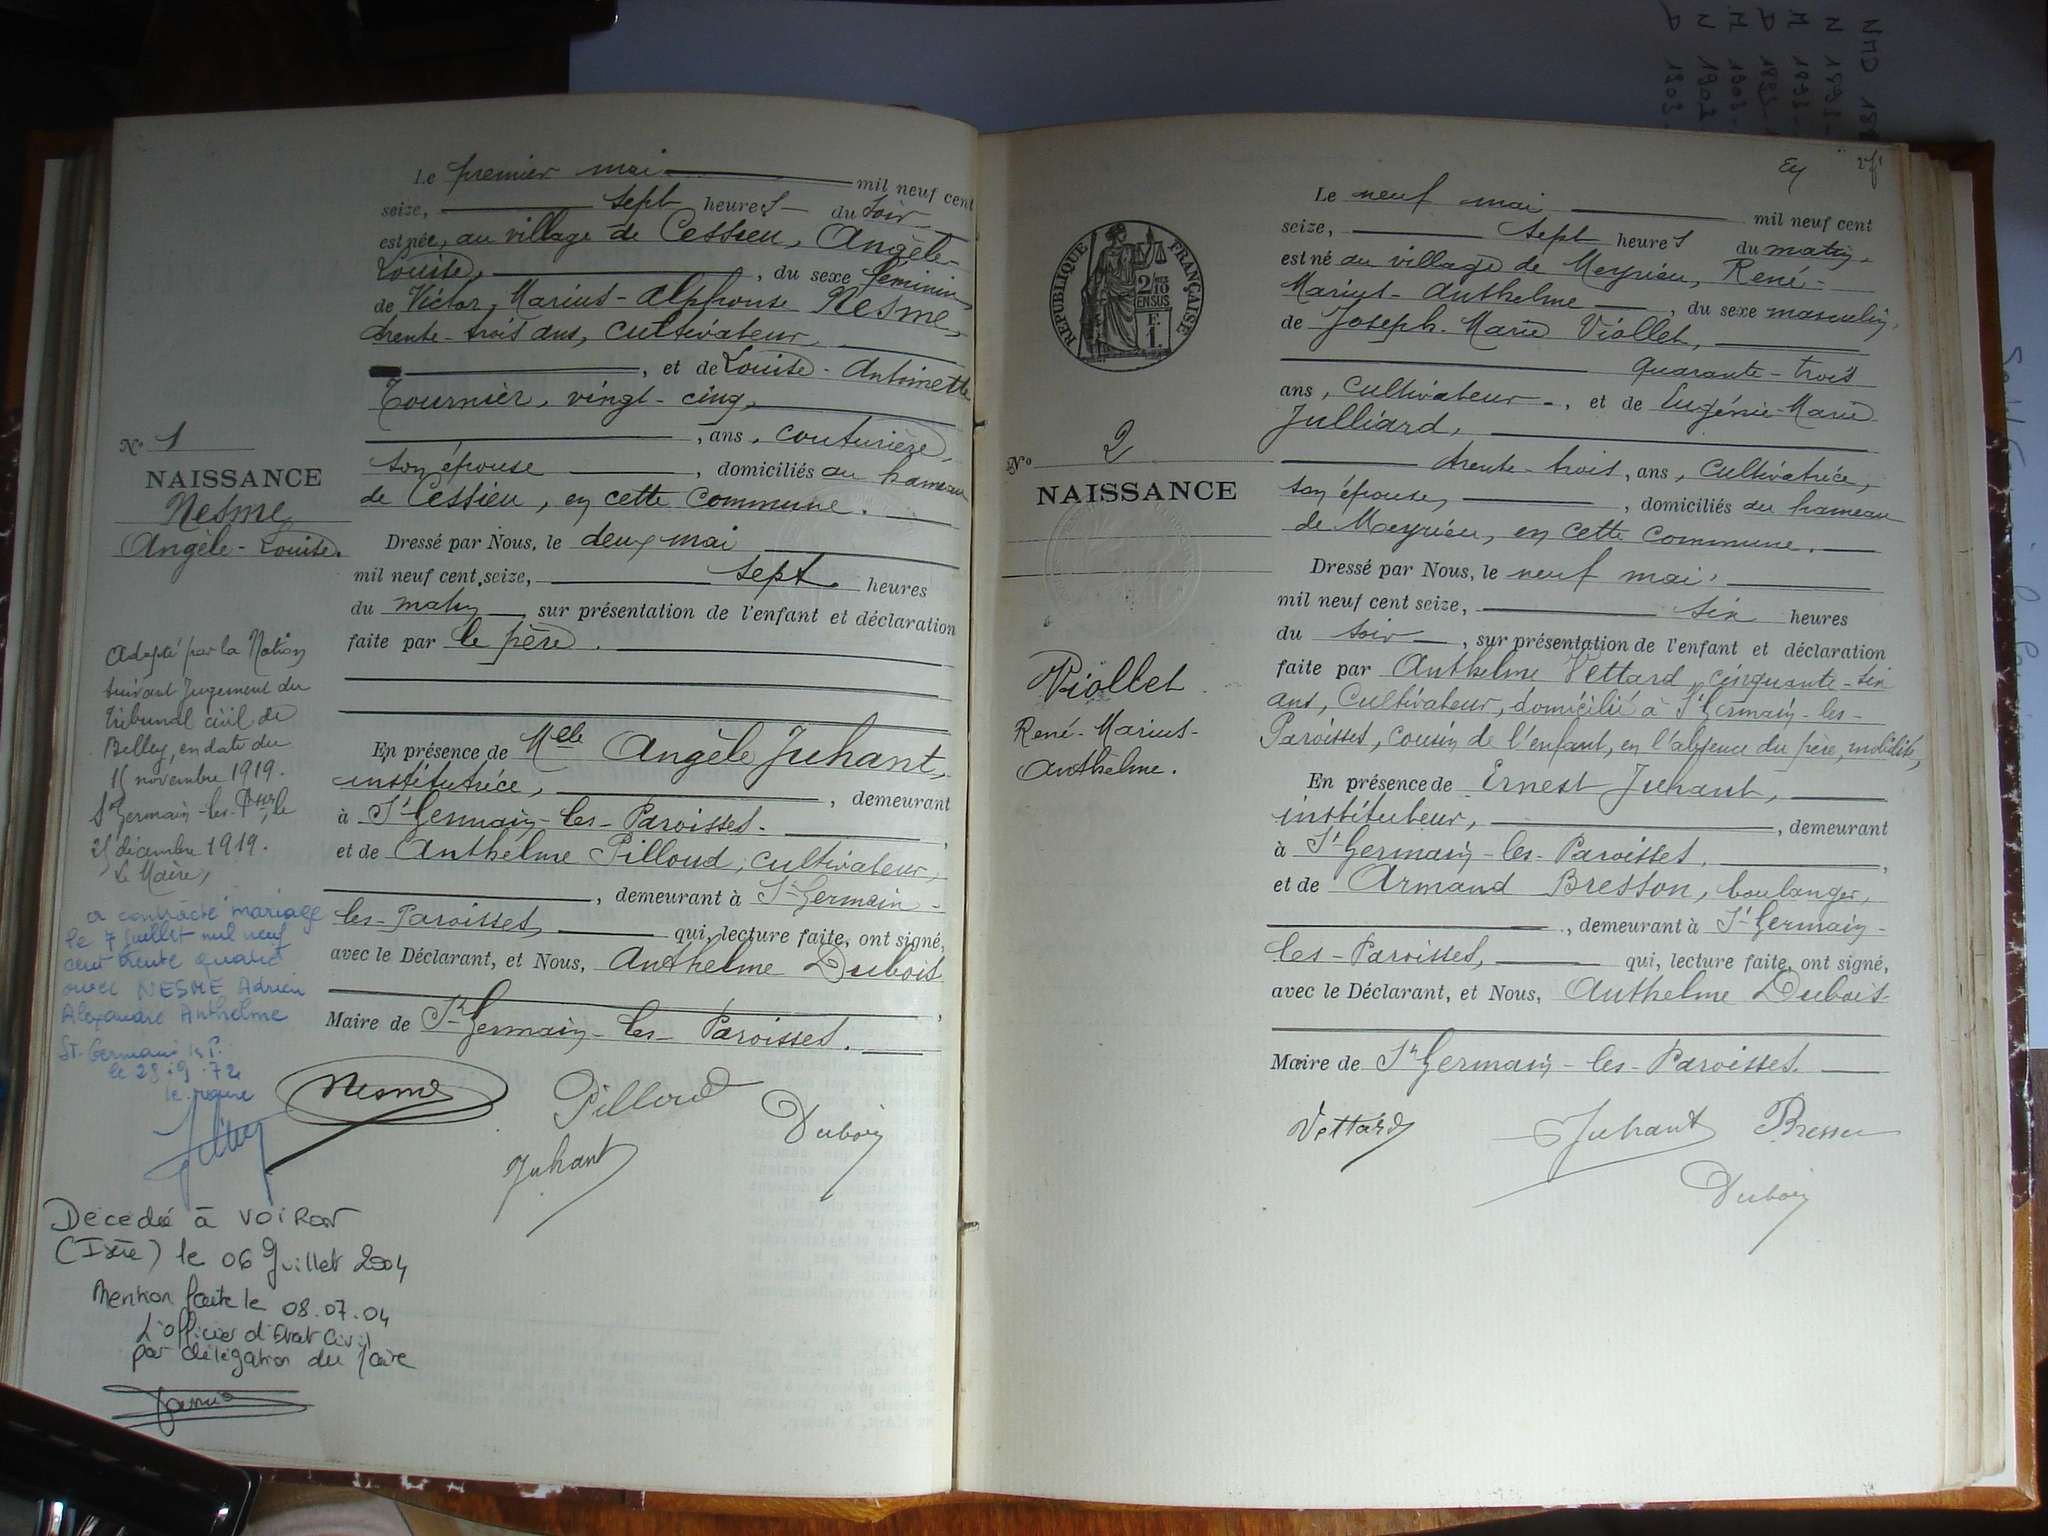 Le premier mai mil neuf cent
seize, sept heures du soir
est née, au village de Cessieu, Angèle-
Louise, , du sexe féminin,
de Victor, Marius-Alphonse Nesme,
trente-trois ans, cultivateur
, et de Louise-Antoinette
Tournier, vingt-cinq,
, ans, couturière,
son épouse , domiciliés au hameau
de Cessieu, en cette commune.
Dressé par Nous, le deux mai
mil neuf cent seize, sept heures
du matin sur présentation de l'enfant et déclaration
faite par le père.
En présence de Melle Angèle Juhant,
institutrice, , demeurant
à St Germain-les-Paroisses. ,
et de Anthelme Pilloud, cultivateur,
, demeurant à St Germain-
les-Paroisses qui, lecture faite, ont signé,
avec le Déclarant, et Nous, Anthelme Dubois
,
Maire de St Germain-les-Paroisses.
Nesme Pilloud Dubois
Juhant
No 1
NAISSANCE
Nesme
Angèle-Louise.
Adopté par la Nation
suivant jugement du
tribunal civil de
Belley, en date du
15 novembre 1919.
St Germain-les-Pses, le
25 décembre 1919.
Le Maire,
a contracté mariage
le 7 juillet mil neuf
cent trente quatre
avec NESME Adrien
Alexandre Anthelme
St-Germain les P.
le 28.9.72
le maire
Décedée à VOIRON
(Isère) le 06 Juillet 2004
Mention faite le 08.07.04
L'officier d'Etat Civil
par délégation du Maire
Le neuf mai mil neuf cent
seize, sept heures du matin
est né au village de Meyrieu, René-
Marius-Anthelme , du sexe masculin,
de Joseph-Marie Viollet,
quarante-trois
ans, cultivateur , et de Eugénie-Marie
Julliard,
trente-trois, ans, cultivatrice,
son épouse, , domiciliés au hameau
de Meyrieu, en cette commune.
Dressé par Nous, le neuf mai
mil neuf cent seize, six heures
du soir , sur présentation de l'enfant et déclaration
faite par Anthelme Vettard, cinquante-six
ans, cultivateur, domicilié à St Germain-les-
Paroisses, cousin de l'enfant, en l'absence du père, mobilisé,
En présence de Ernest Juhant,
instituteur, , demeurant
à St Germain-les-Paroisses. ,
et de Armand Bresson, boulanger,
, demeurant à St Germain-
les-Paroisses, qui, lecture faite, ont signé,
avec le Déclarant, et Nous, Anthelme Dubois
Maire de St Germain-les-Paroisses.
Vettard Juhant Bresson
Dubois
RÉPUBLIQUE FRANÇAISE
2/10
EN SUS
F.
1.
No 2
NAISSANCE
Viollet
René-Marius-
Anthelme.
N 1902